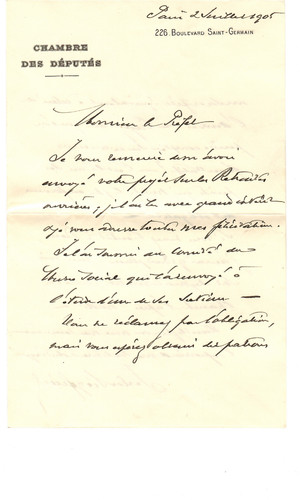 Paris 2 Juillet 1905
226. BOULEVARD SAINT-GERMAIN
CHAMBRE
DES DÉPUTÉS
Monsieur le Préfet
Je vous remercie de m'avoir
envoyé votre projet sur les Retraites
ouvrières ; je l'ai lu avec grand intérêt
et je vous adresse toutes mes félicitations.
Je l'ai soumis au Comité du
Musée social qui l'a renvoyé à
l'étude d'une de ses Sections —
Vous ne réclamez pas l'obligation,
mais vous espérez obtenir des patrons